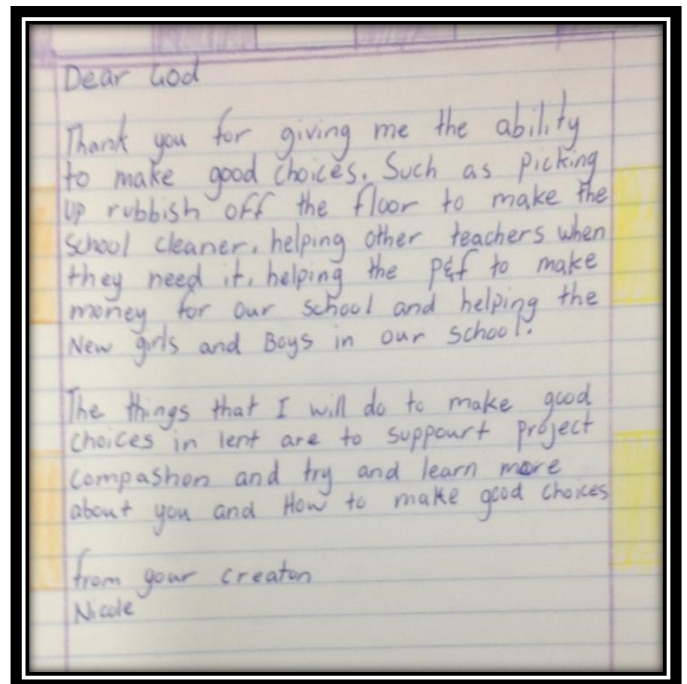 Dear God
Thank you for giving me the ability
to make good choices. Such as picking
up rubbish off the floor to make the
school cleaner, helping other teachers when
they need it, helping the P&f to make
money for our school and helping the
New girls and Boys in our school.
The things that I will do to make good
choices in lent are to suppourt project
compashon and try and learn more
about you and How to make good choices
from your creaton
Nicole